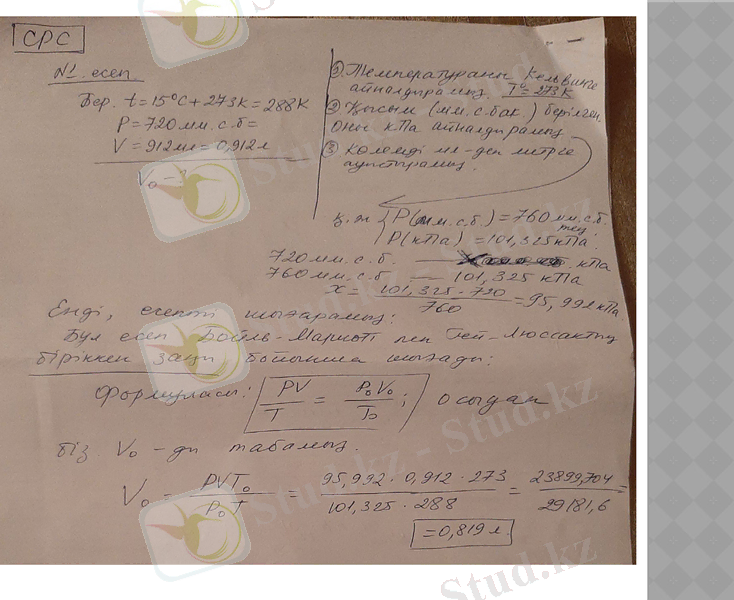 СРС
№1. есеп.
Бер. t=15°C+273K=288K
P=720мм.с.б=
V=912мл=0,912л
V₀-?
① Температураны Кельвинге
айналдырамыз. T°=273K
② Қысым (мм.с.бак.) берілген
оны кПа айналдырамыз
③ Көлемді мл-ден литрге
ауыстырамыз.
P(мм.с.б.)=760мм.с.б.
тең
P(кПа)=101,325кПа.
720мм.с.б. — кПа
760мм.с.б. — 101,325 кПа
x = 101,325·720 / 760 = 95,992кПа
Енді, есепті шығарамыз:
Бұл есеп Бойль-Мариотт пен Гей-Люссактың
біріккен заңы бойынша шығады:
Формуласы: PV/T = P₀V₀/T₀; осыдан
біз V₀-ди табамыз.
V₀ = PVT₀/P₀T = 95,992·0,912·273 / 101,325·288 = 23899,704 / 29181,6 =
=0,819л.
Stud.kz - Stud.kz
Stud.kz - Stud.kz
Stud.kz